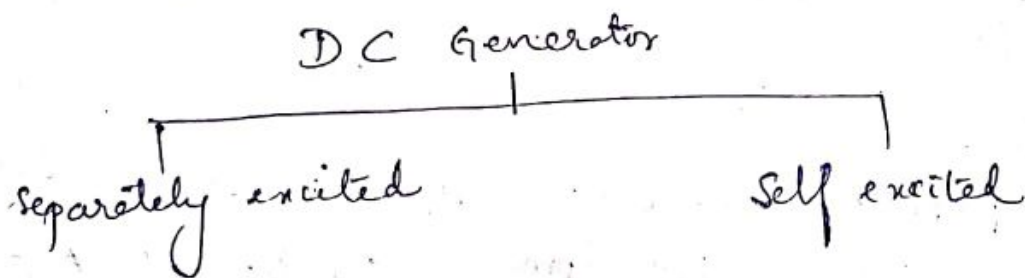 DC Generator
Separately excited
Self excited